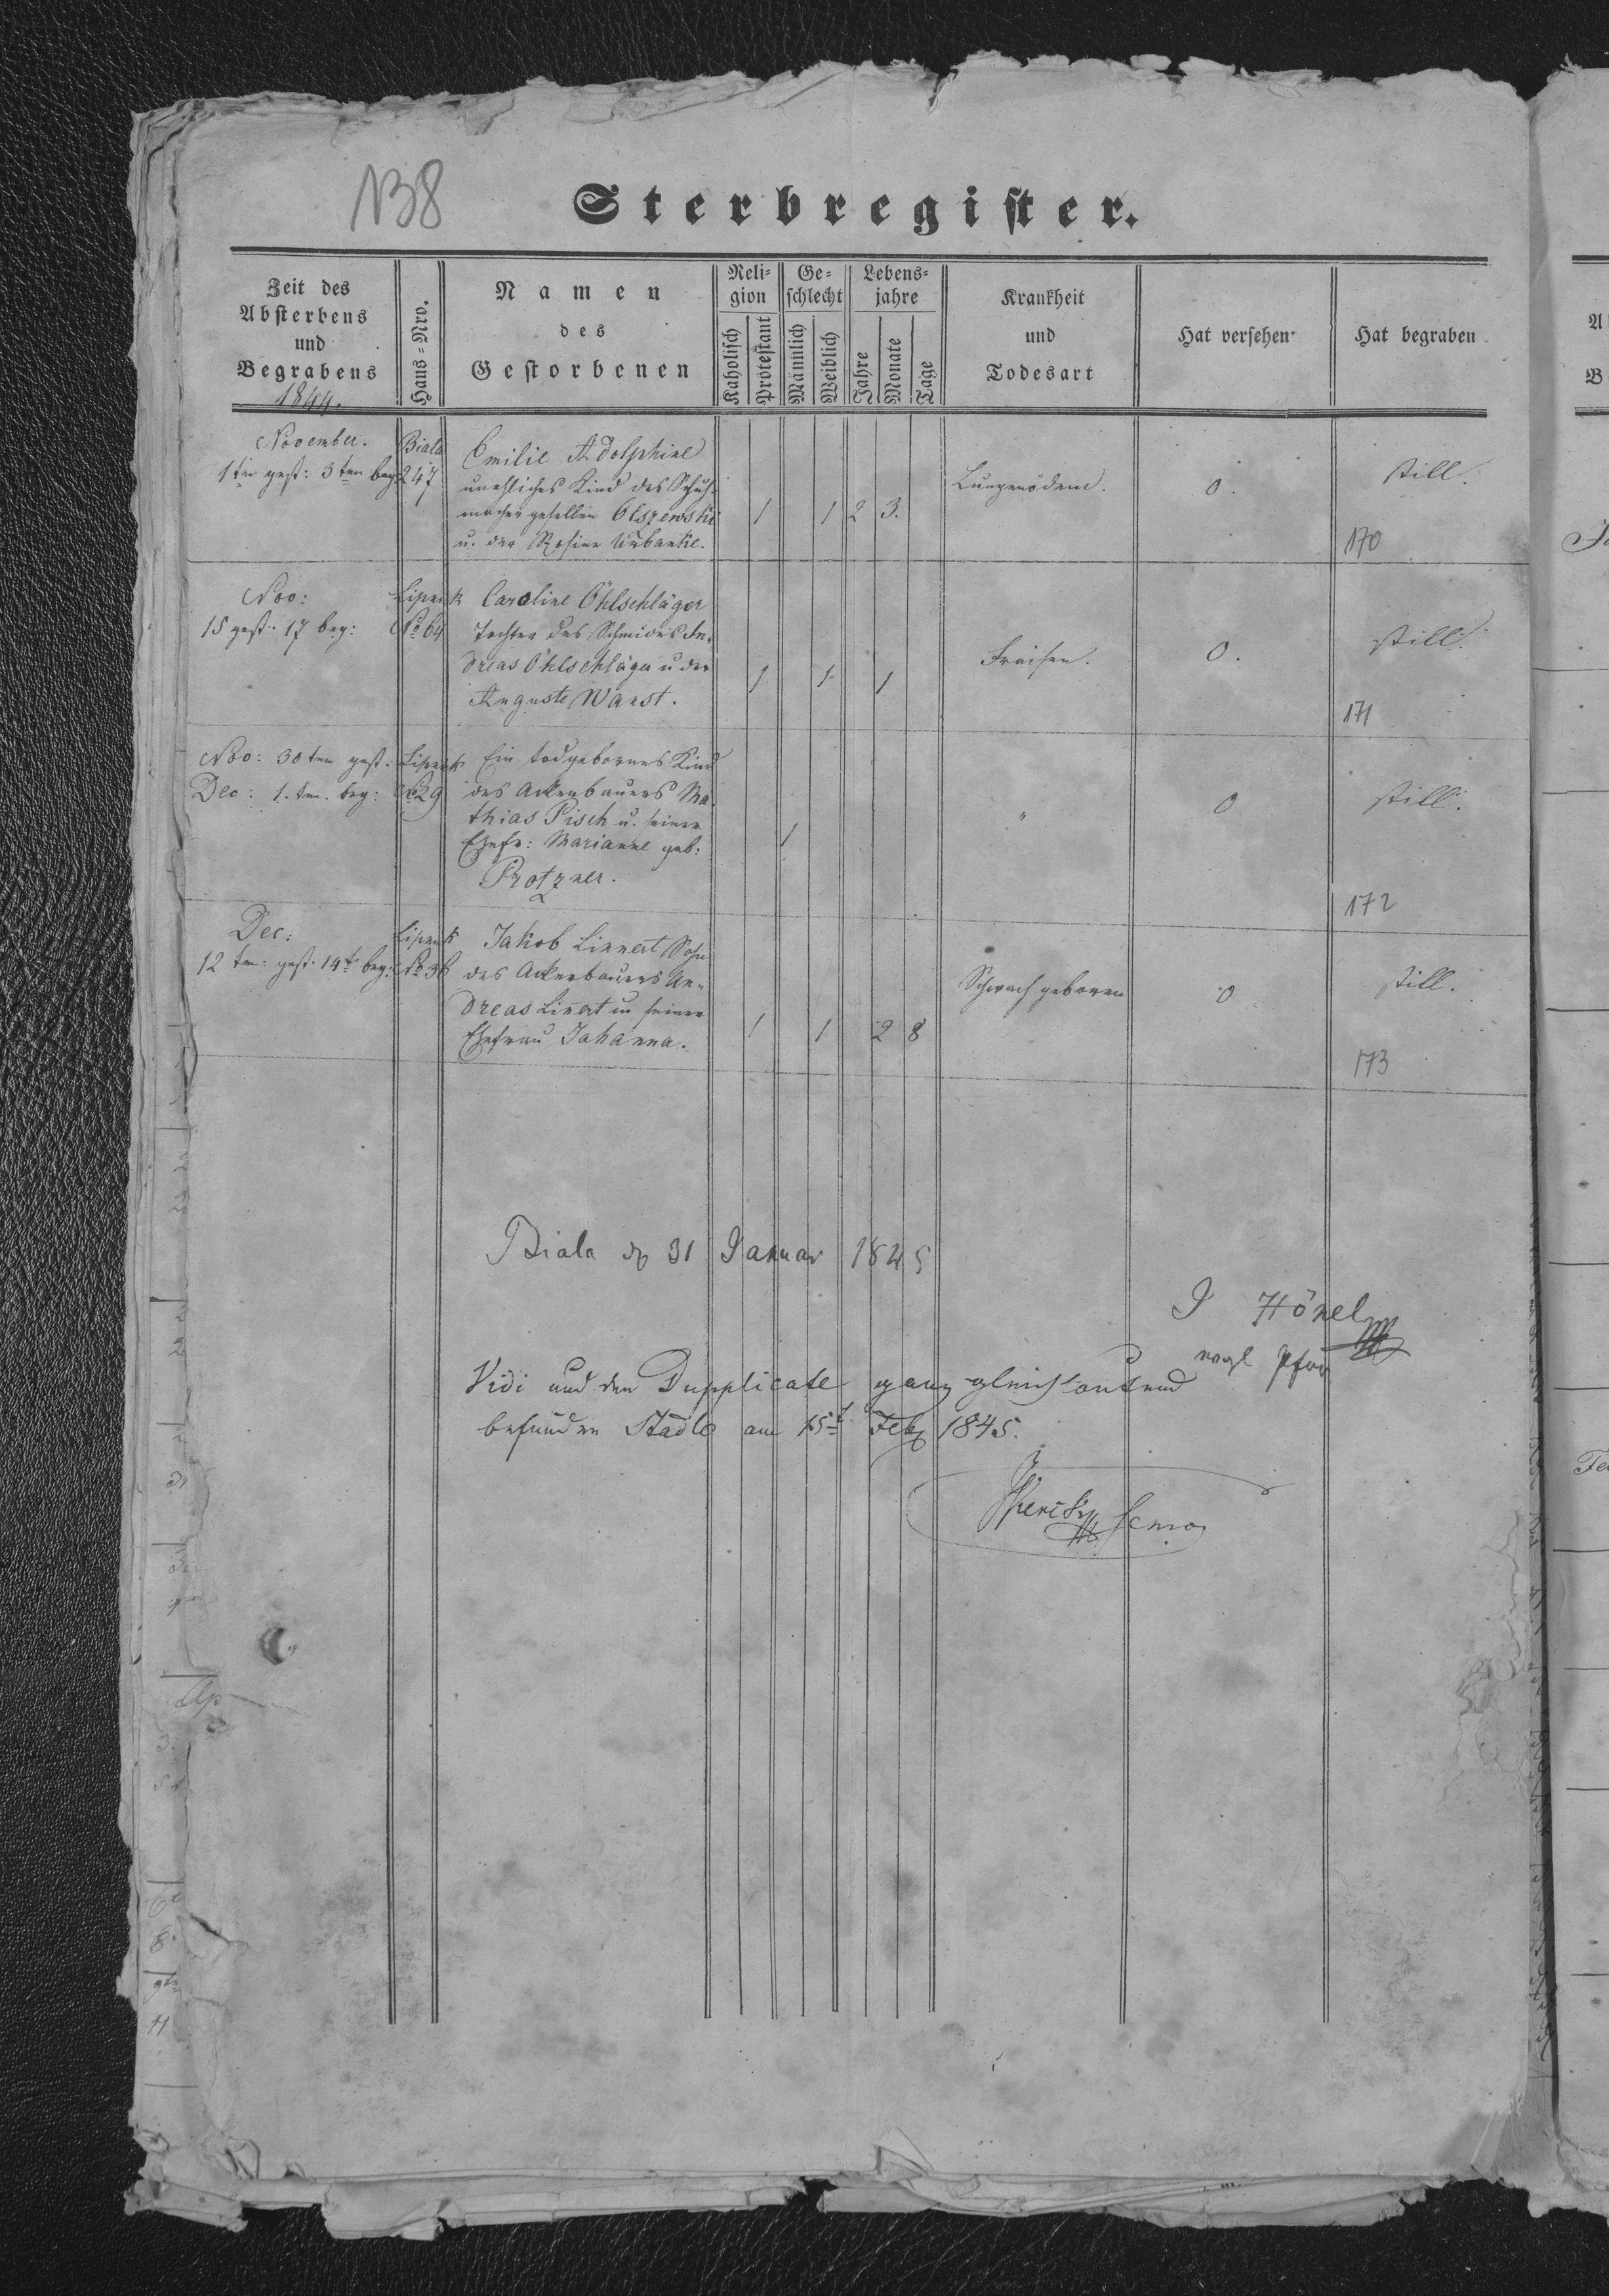 138
Sterbregister.
Zeit des
Absterbens
und
Begrabens
1844.
Haus-Nro.
Namen
des
Gestorbenen
Reli-
gion
Kaholisch
Protestant
Ge-
schlecht
Männlich
Weiblich
Lebens-
jahre
Jahre
Monate
Tage
Krankheit
und
Todesart
Hat versehen
Hat begraben
November. Biala Emilie Adolphine
1ten gest: 3ten beg: 247 unehliches Kind des Schuh- Lungenödem. 0. still.
machergesellen Olszewski 1 1 2 3.
u. der Rosina Urbanke. 170
Nov: Lipnik Caroline Öhlschläger
15 gest. 17 beg: No 64 Tochter des Schmides An-
dreas Öhlschläger u der 1 1 1 Fraisen. 0. still.
Auguste Warst. 171
Nov: 30ten gest. Lipnik Ein todgebornes Kind
Dec: 1.ten. beg: No 29 des Ackerbauers Ma- 0 still.
thias Pisch u. seiner "
Ehefr: Marianne geb: 1
Protzner. 172
Dec: Lipnik Jakob Linnert Sohn
12 ten. gest. 14t beg: No 36 des Ackerbauers An- Schwach geboren 0 still.
dreas Linert u seiner
Ehefrau Johanna. 1 1 2 8 173
Biala 31 Januar 1845
J Hönel
Vidi und den Dupplicate ganz gleichlautend
befunden Stadlo am 15t Feb 1845.